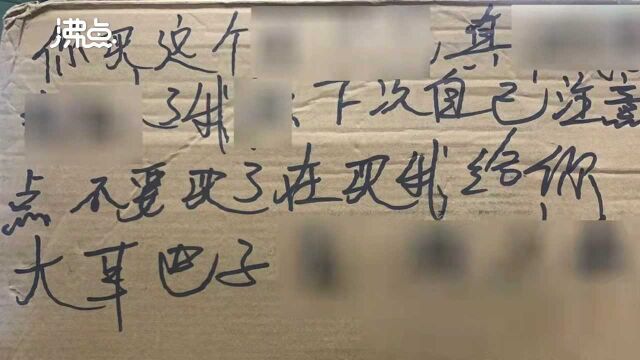 沸点
你买这个 ,真
了我 下次自己注意
点 不要买了在买我给你
大耳巴子